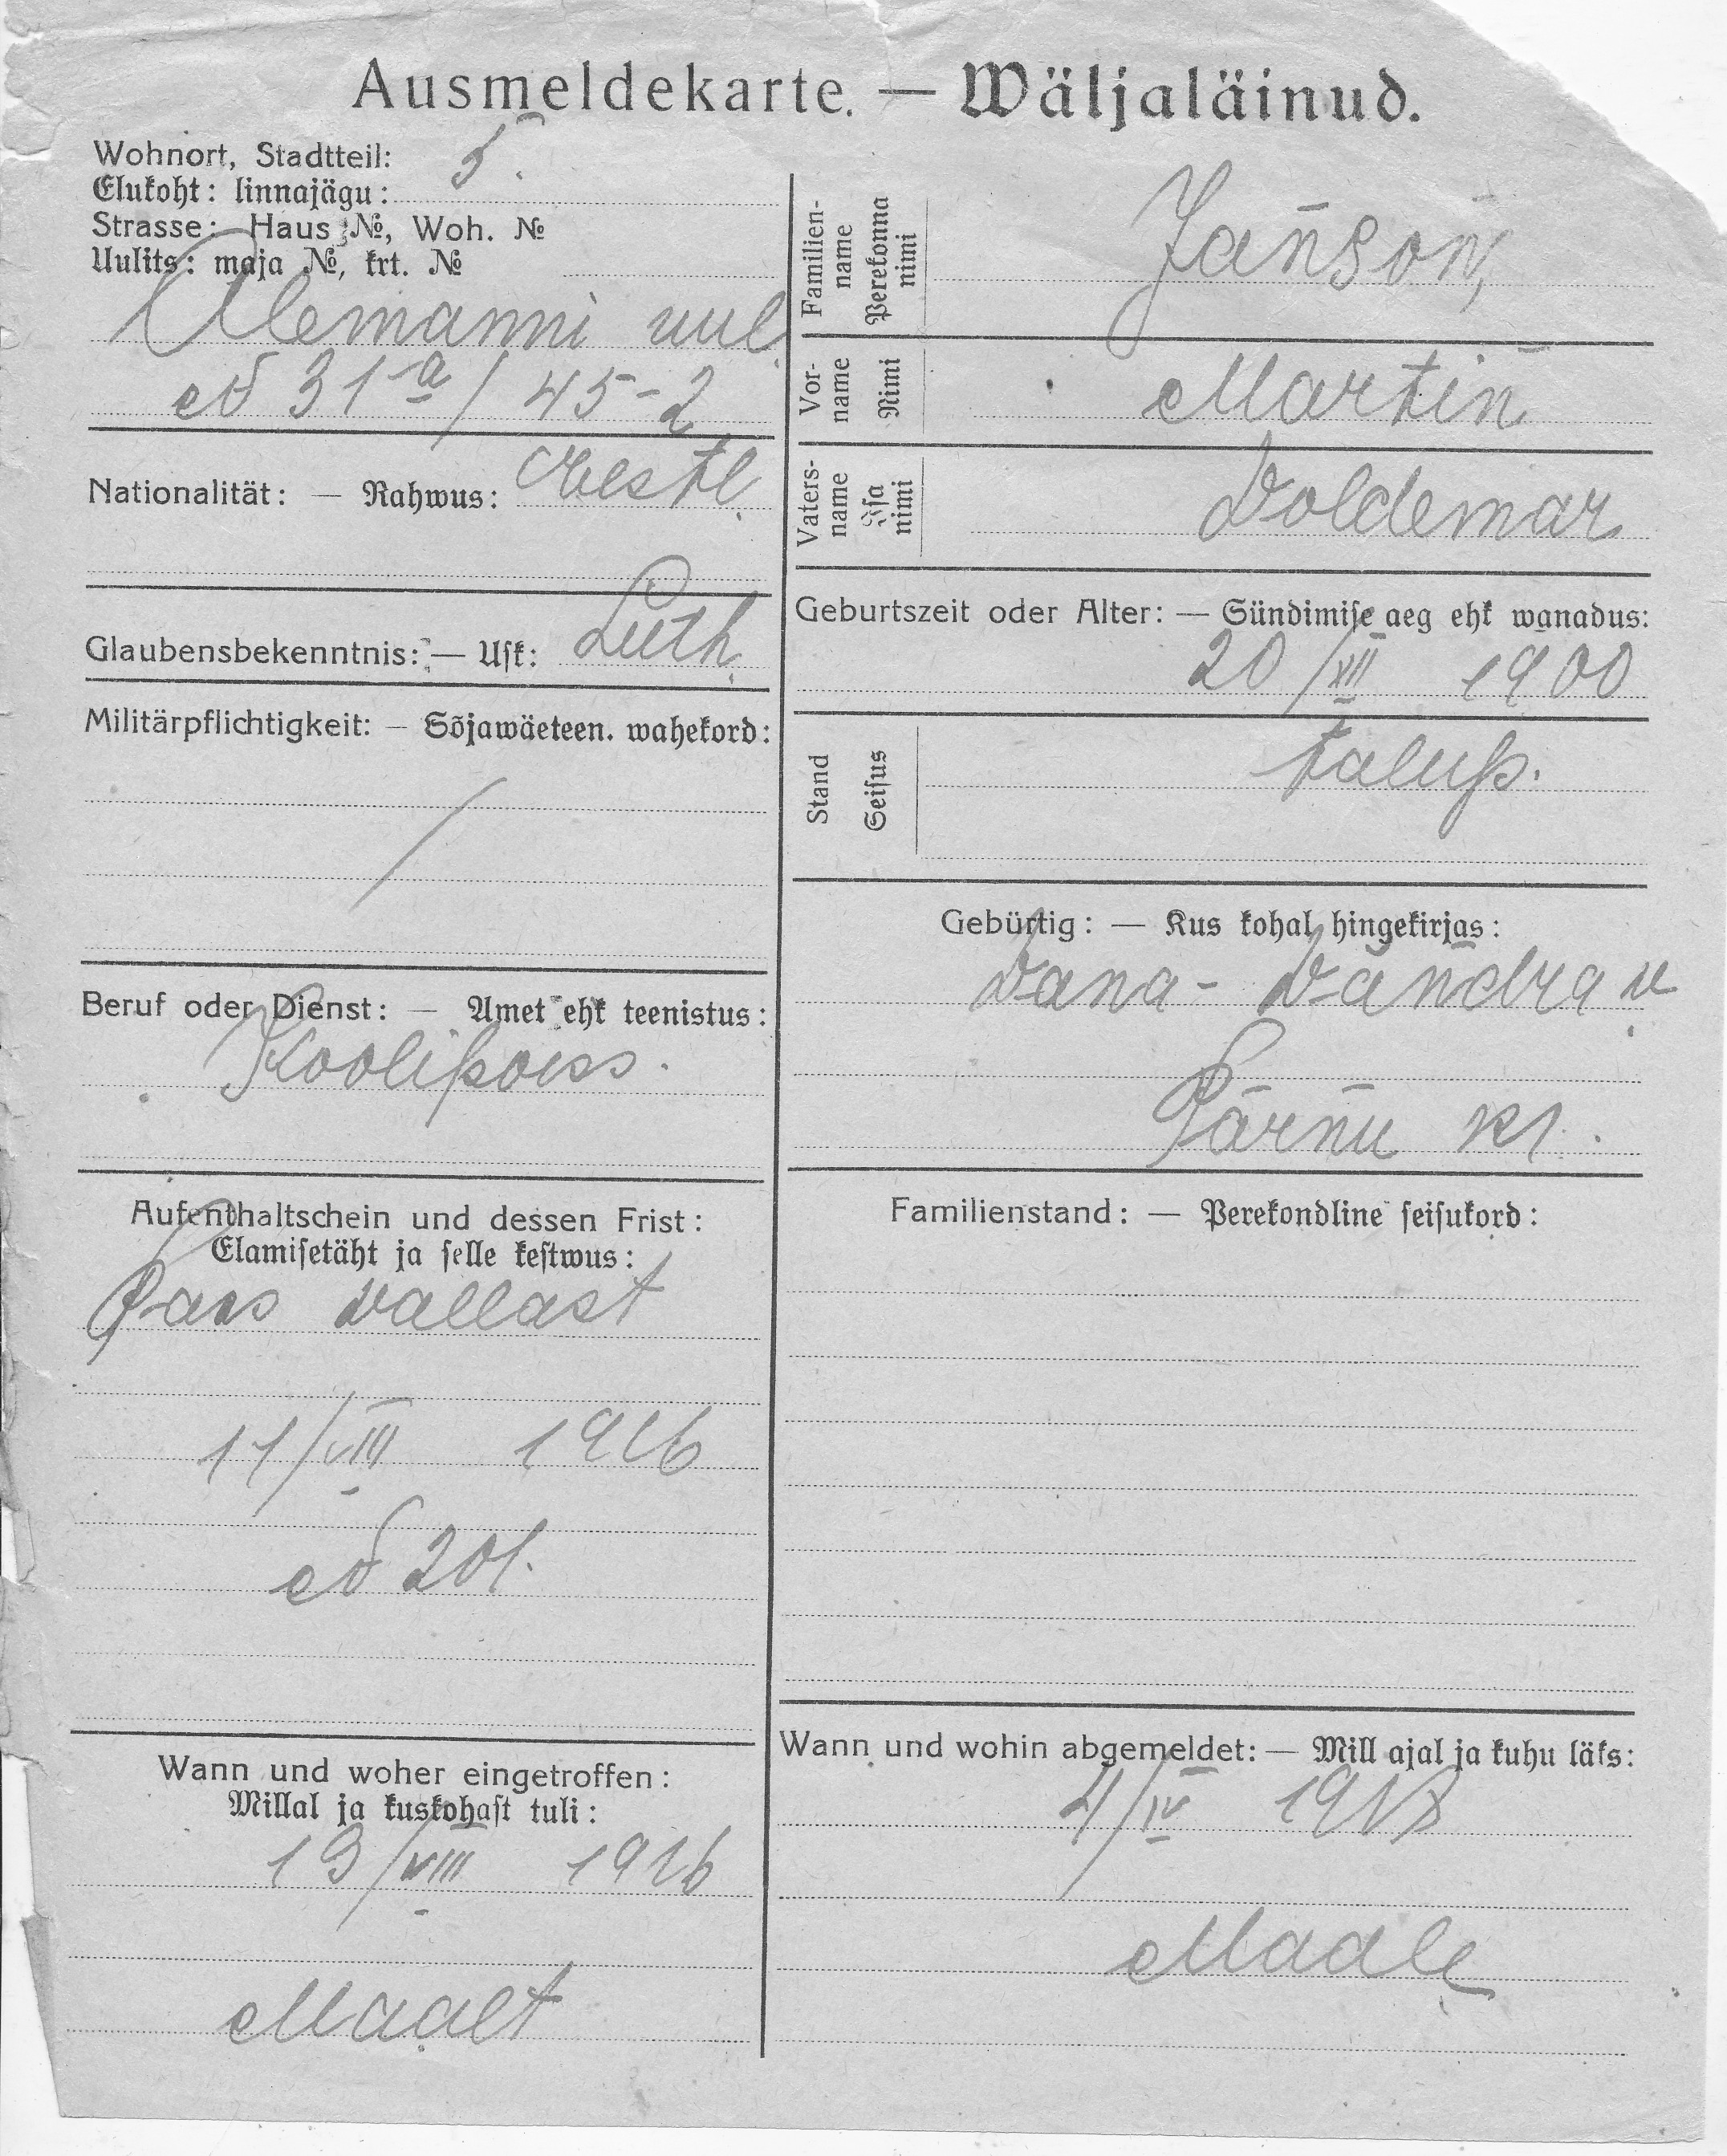 Ausmeldekarte. — Wäljaläinud.
Wohnort, Stadtteil:
Elukoht: linnajägu: 5.
Strasse: Haus №, Woh. №
Uulits: maja №, krt. №
Alemanni uul.
№ 31a/45-2
Nationalität: — Rahwus: Eestl.
Glaubensbekenntnis: — Usk: Luth.
Militärpflichtigkeit: — Sõjawäeteen. wahekord:
/
Beruf oder Dienst: — Amet ehk teenistus:
Koolipoiss.
Aufenthaltschein und dessen Frist:
Elamisetäht ja selle kestwus:
Pass vallast
11/VIII 1916
№ 201.
Wann und woher eingetroffen:
Millal ja kuskohast tuli:
19/VIII 1916
Maalt
Familien-
name
Perekonna
nimi
Janson,
Vor-
name
Nimi
Martin
Vaters-
name
Isa
nimi
Voldemar
Geburtszeit oder Alter: — Sündimise aeg ehk wanadus:
20/VII 1900
Stand
Seisus
talup.
Gebürtig: — Kus kohal hingekirjas:
Vana-Vändra v.
Pärnu kr.
Familienstand: — Perekondline seisukord:
Wann und wohin abgemeldet: — Mill ajal ja kuhu läks:
4/IV 1918
Maale